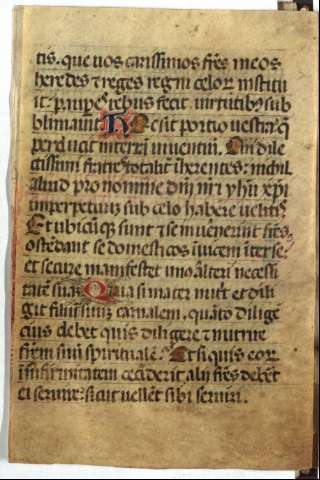 tis. que uos carissimos fr̄es meos
heredes ⁊ reges regni celor̄ institu
it: pauperes rebus fecit. uirtutibꝫ sub
blimauit. Hec sit portio uestra: q̄
perducit in terrā uiuentiū. Cui dile
ctissimi fratres totalit̄ inherentes: nichil
aliud pro nomine dn̄i nr̄i yhū xp̄i
imperpetuuꝫ sub celo habere uelitis.
Et ubicūqꝫ sunt ⁊ se inuenerint fr̄es.
ostendant se domesticos īuicem inter se:
et secure manifestet un᷒ alteri necessi
tatē suaꝫ Quia si mater nutrit et dili
git filiū suuꝫ carnalem. quāto dilige
cius debet quis diligere ⁊ nutrire
fr̄em suū spiritualē. Et si quis eor̄
ī infirmitatem ceciderit; alij fr̄es debēt
ei seruire: sicut uellēt sibi seruiri.